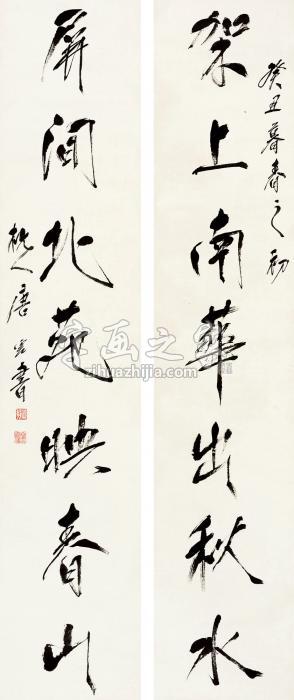 癸丑暮春之初
架上南華出秋水
屏间北苑映春山
枕人唐云書
字画之家
zihuazhijia.com